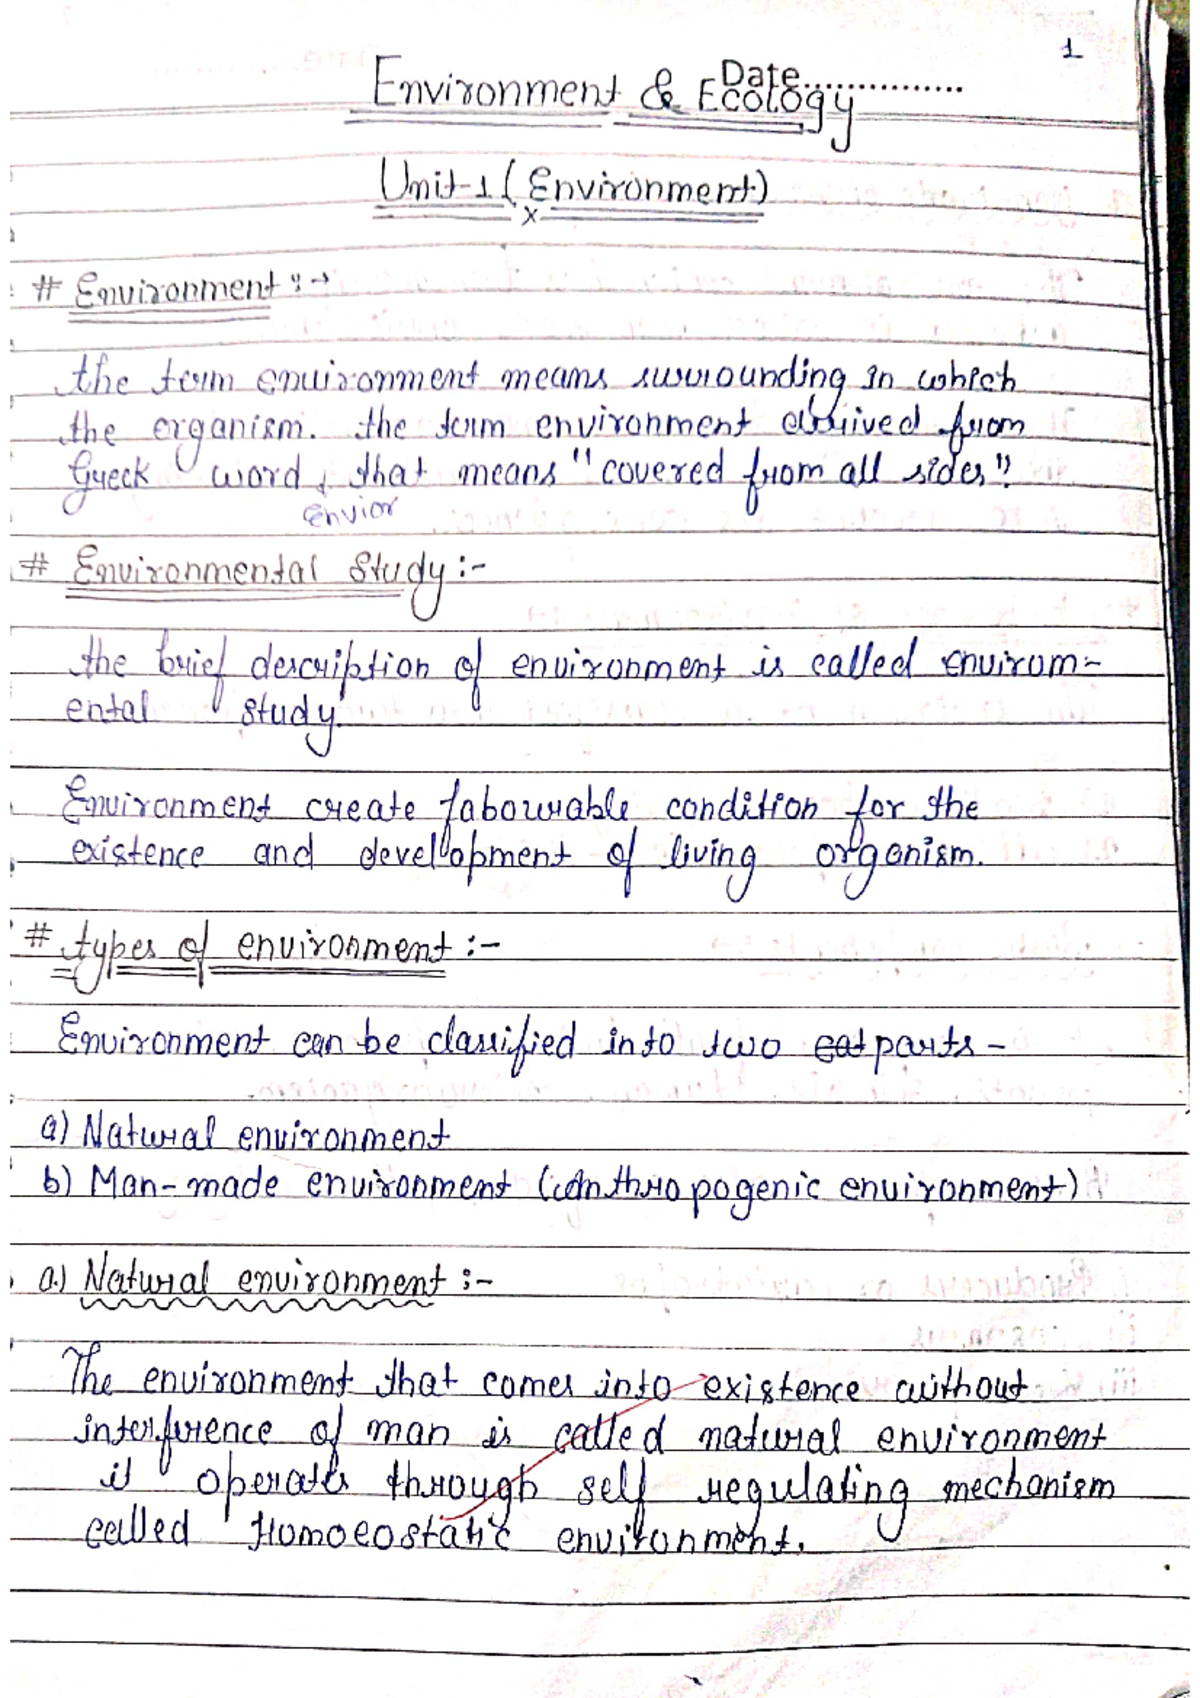 1
Date................
Environment & Ecology
Unit-1 (Environment)
x
# Environment :→
the term environment means surrounding in which
the organism. the term environment derived from
Greek word, that means "covered from all sides"
Envior
# Environmental Study :-
the brief description of environment is called environm-
ental study.
Environment create fabourable condition for the
existence and development of living organism.
# types of environment :-
Environment can be classified into two cat parts -
a) Natural environment
b) Man-made environment (anthropogenic environment)
a.) Natural environment :-
The environment that comes into existence without
interference of man is called natural environment
it operates through self regulating mechanism
called Homoeostatic environment.